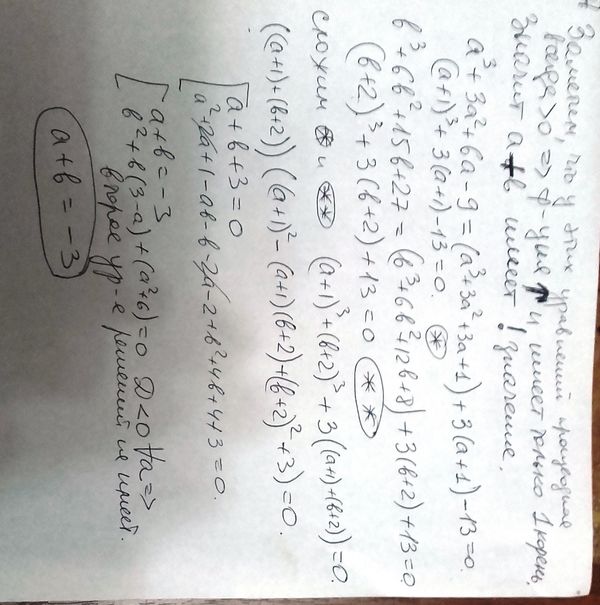 Заметим, что у этих уравнений производная
всегда >0 => ф-ция ↑ и имеет только 1 корень.
Значит a+b имеет ! значение.
a³+3a²+6a-9=(a³+3a²+3a+1)+3(a+1)-13=0.
(a+1)³+3(a+1)-13=0. (*)
b³+6b²+15b+27=(b³+6b²+12b+8)+3(b+2)+13=0
(b+2)³+3(b+2)+13=0 (**)
сложим (*) и (**) (a+1)³+(b+2)³+3((a+1)+(b+2))=0.
((a+1)+(b+2))((a+1)²-(a+1)(b+2)+(b+2)²+3)=0.
[a+b+3=0
a²+2a+1-ab-b-2a-2+b²+4b+4+3=0.
[a+b=-3
b²+b(3-a)+(a²+6)=0 D<0 ∀a=>
второе ур-е решений не имеет.
a+b=-3